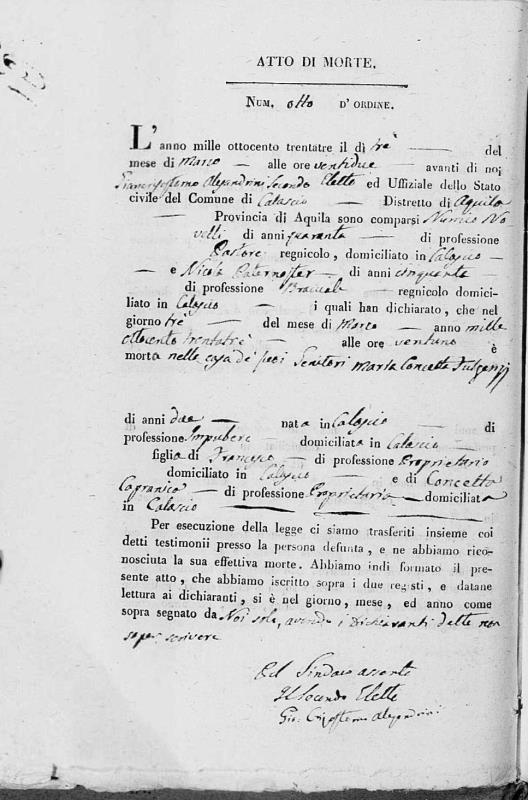 ATTO DI MORTE.
NUM. otto D'ORDINE.
L'anno mille ottocento trentatre il dì tre del
mese di Marzo alle ore ventidue avanti di noi
Alesandrini Secondo Eletto ed Uffiziale dello Stato
civile del Comune di Calascio Distretto di Aquila
Provincia di Aquila sono comparsi No
velli di anni quaranta di professione
Pastore regnicolo, domiciliato in Calascio
e Nicola Paternoster di anni cinquanta
di professione Bracciale regnicolo domici-
liato in Calascio i quali han dichiarato, che nel
giorno tre del mese di Marzo anno mille
ottocento trentatrè alle ore ventuno è
morta nella casa de' suoi Genitori Maria Concetta
di anni due nata in Calascio di
professione Impubere domiciliata in Calascio
figlia di Francesco di professione Proprietario
domiciliato in Calascio e di Concetta
di professione Proprietaria domiciliata
in Calascio
Per esecuzione della legge ci siamo trasferiti insieme coi
detti testimonii presso la persona defunta, e ne abbiamo rico-
nosciuta la sua effettiva morte. Abbiamo indi formato il pre-
sente atto, che abbiamo iscritto sopra i due registi, e datane
lettura ai dichiaranti, si è nel giorno, mese, ed anno come
sopra segnato da Noi solo, avendo i Dichiaranti detto non
saper scrivere
Pel Sindaco assente
Il Secondo Eletto
Gio: Crisostomo Alesandrini